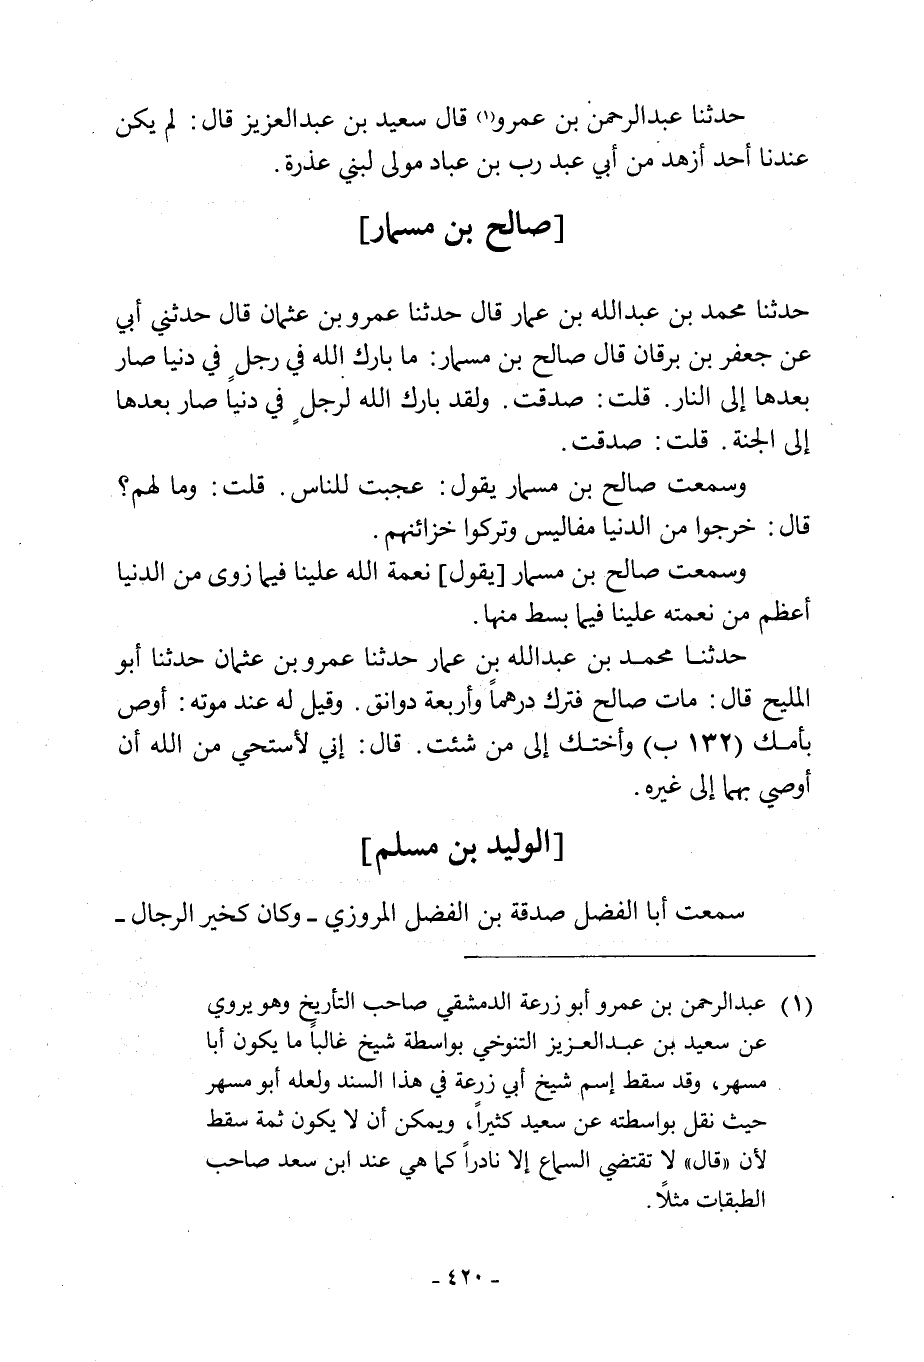 حدثنا عبدالرحمن بن عمرو(١) قال سعيد بن عبدالعزيز قال: لم يكن
عندنا أحد أزهد من أبي عبد رب بن عباد مولى لبني عذرة.
[صالح بن مسمار]
حدثنا محمد بن عبدالله بن عمار قال حدثنا عمرو بن عثمان قال حدثني أبي
عن جعفر بن برقان قال صالح بن مسمار: ما بارك الله في رجلٍ في دنيا صار
بعدها إلى النار. قلت: صدقت. ولقد بارك الله لرجلٍ في دنياً صار بعدها
إلى الجنة. قلت: صدقت.
وسمعت صالح بن مسمار يقول: عجبت للناس. قلت: وما لهم؟
قال: خرجوا من الدنيا مفاليس وتركوا خزائنهم.
وسمعت صالح بن مسمار [يقول] نعمة الله علينا فيما زوى من الدنيا
أعظم من نعمته علينا فيما بسط منها.
حدثنا محمد بن عبدالله بن عمار حدثنا عمرو بن عثمان حدثنا أبو
المليح قال: مات صالح فترك درهماً وأربعة دوانق. وقيل له عند موته: أوص
بأمك (١٣٢ ب) وأختك إلى من شئت. قال: إني لأستحي من الله أن
أوصي بهما إلى غيره.
[الوليد بن مسلم]
سمعت أبا الفضل صدقة بن الفضل المروزي ـ وكان كخير الرجال ـ
(١) عبدالرحمن بن عمرو أبو زرعة الدمشقي صاحب التأريخ وهو يروي
عن سعيد بن عبدالعزيز التنوخي بواسطة شيخ غالباً ما يكون أبا
مسهر، وقد سقط إسم شيخ أبي زرعة في هذا السند ولعله أبو مسهر
حيث نقل بواسطته عن سعيد كثيراً، ويمكن أن لا يكون ثمة سقط
لأن «قال» لا تقتضي السماع إلا نادراً كما هي عند ابن سعد صاحب
الطبقات مثلاً.
ـ ٤٢٠ ـ